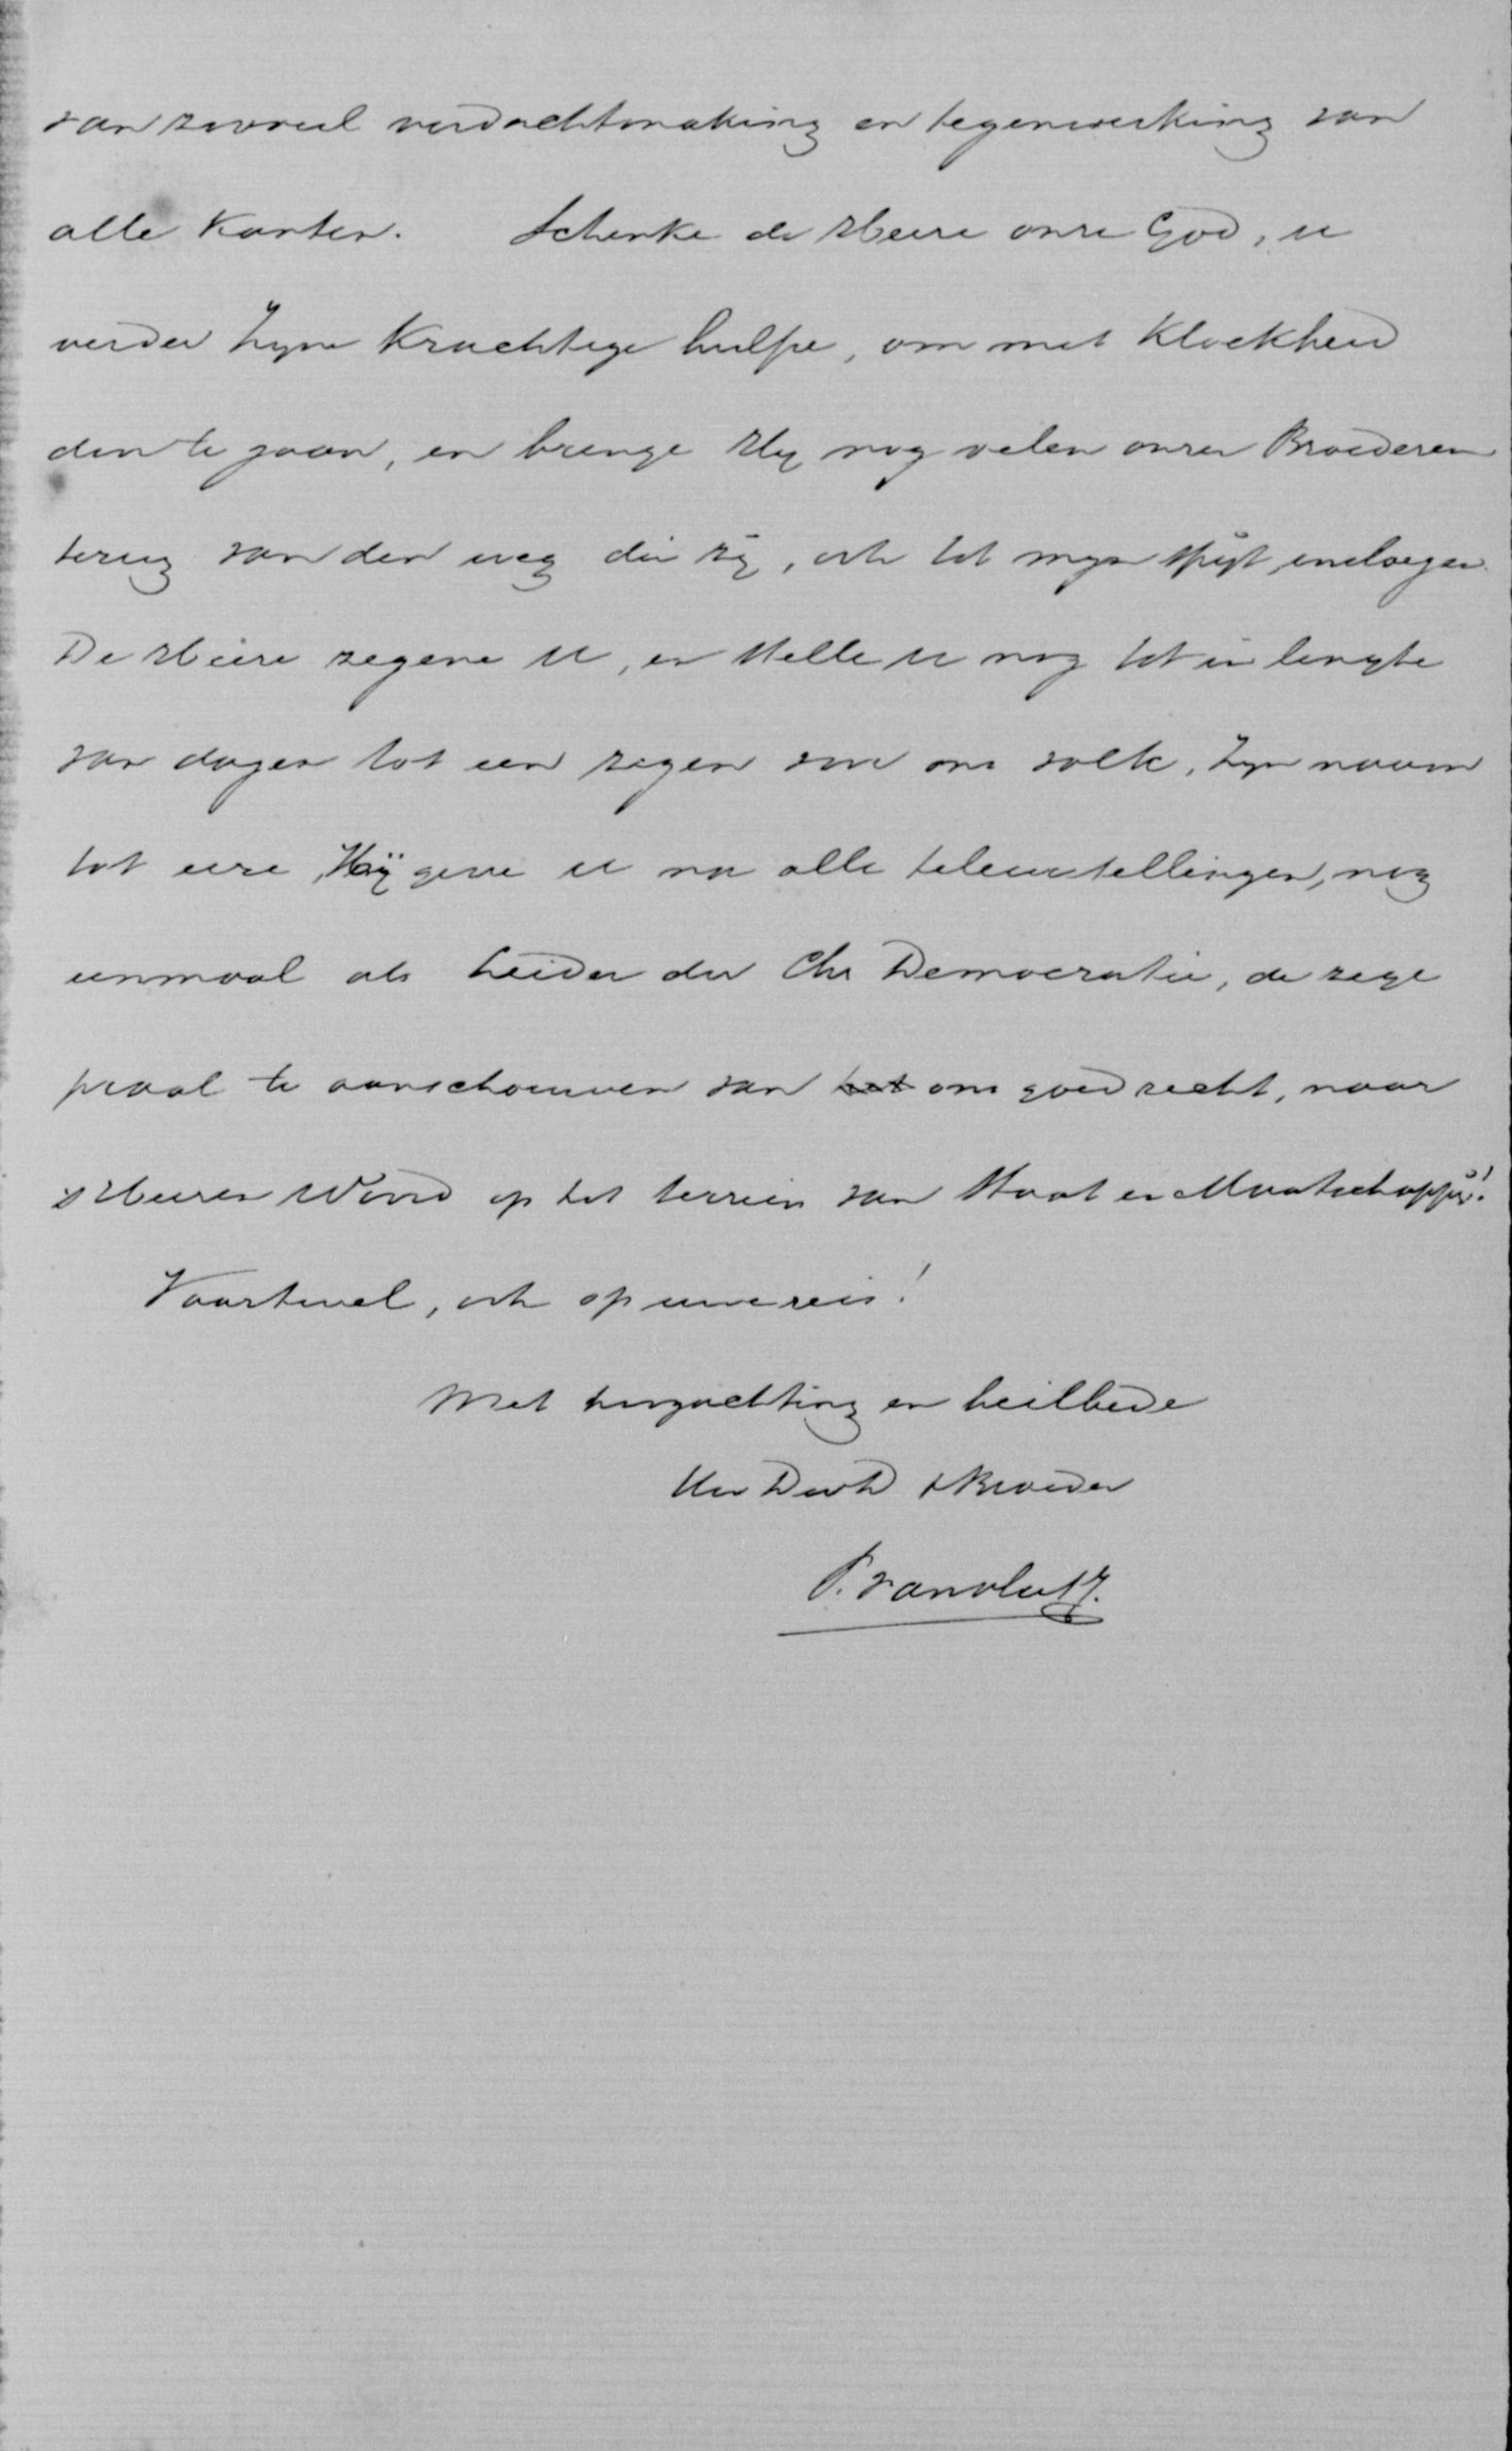 van zooveel verdachtmaking en tegenwerking van
alle kanten. Schenke de Heere onze God, u
verder Zijne krachtige hulpe, om met kloekheid
door te gaan, en brenge Hij nog velen onzer Broederen
terug van den weg die zij, ook tot mijn spijt, insloegen.
De Heere zegene U, en stelle u nog tot in lengte
van dagen tot een zegen voor ons volk, Zijn naam
tot eere, Hij geve u na alle teleurstellingen, nog
eenmaal als Leider der Chr Democratie, de zege
praal te aanschouwen van het ons goed recht, naar
s Heeren Woord op het terrein van Staat en Maatschappij!
Vaartwel, ook op uwe reis!
Met hoogachting en heilbede
Uw Dw D & Broeder
P. van Vliet Jr.